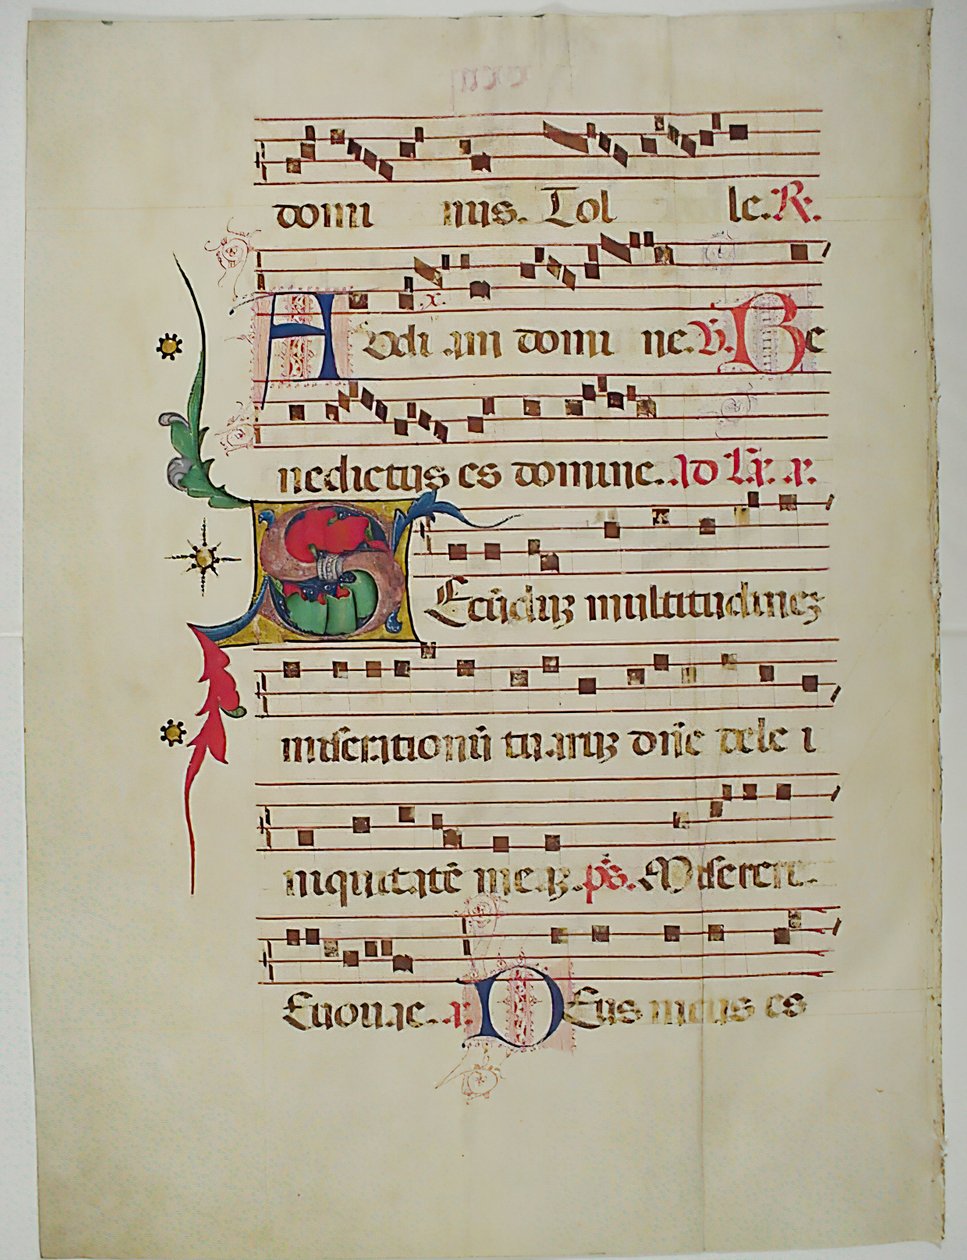 domi nus. Tol le. R.
Audiam domi ne. V. Be
nedictus es domine. Ad lau. a.
Secūduz multitudinez
miserationū tuaruz dn̄e dele i
iniquitatē meaz. ps. Miserere.
Euouae. a. Deus meus es